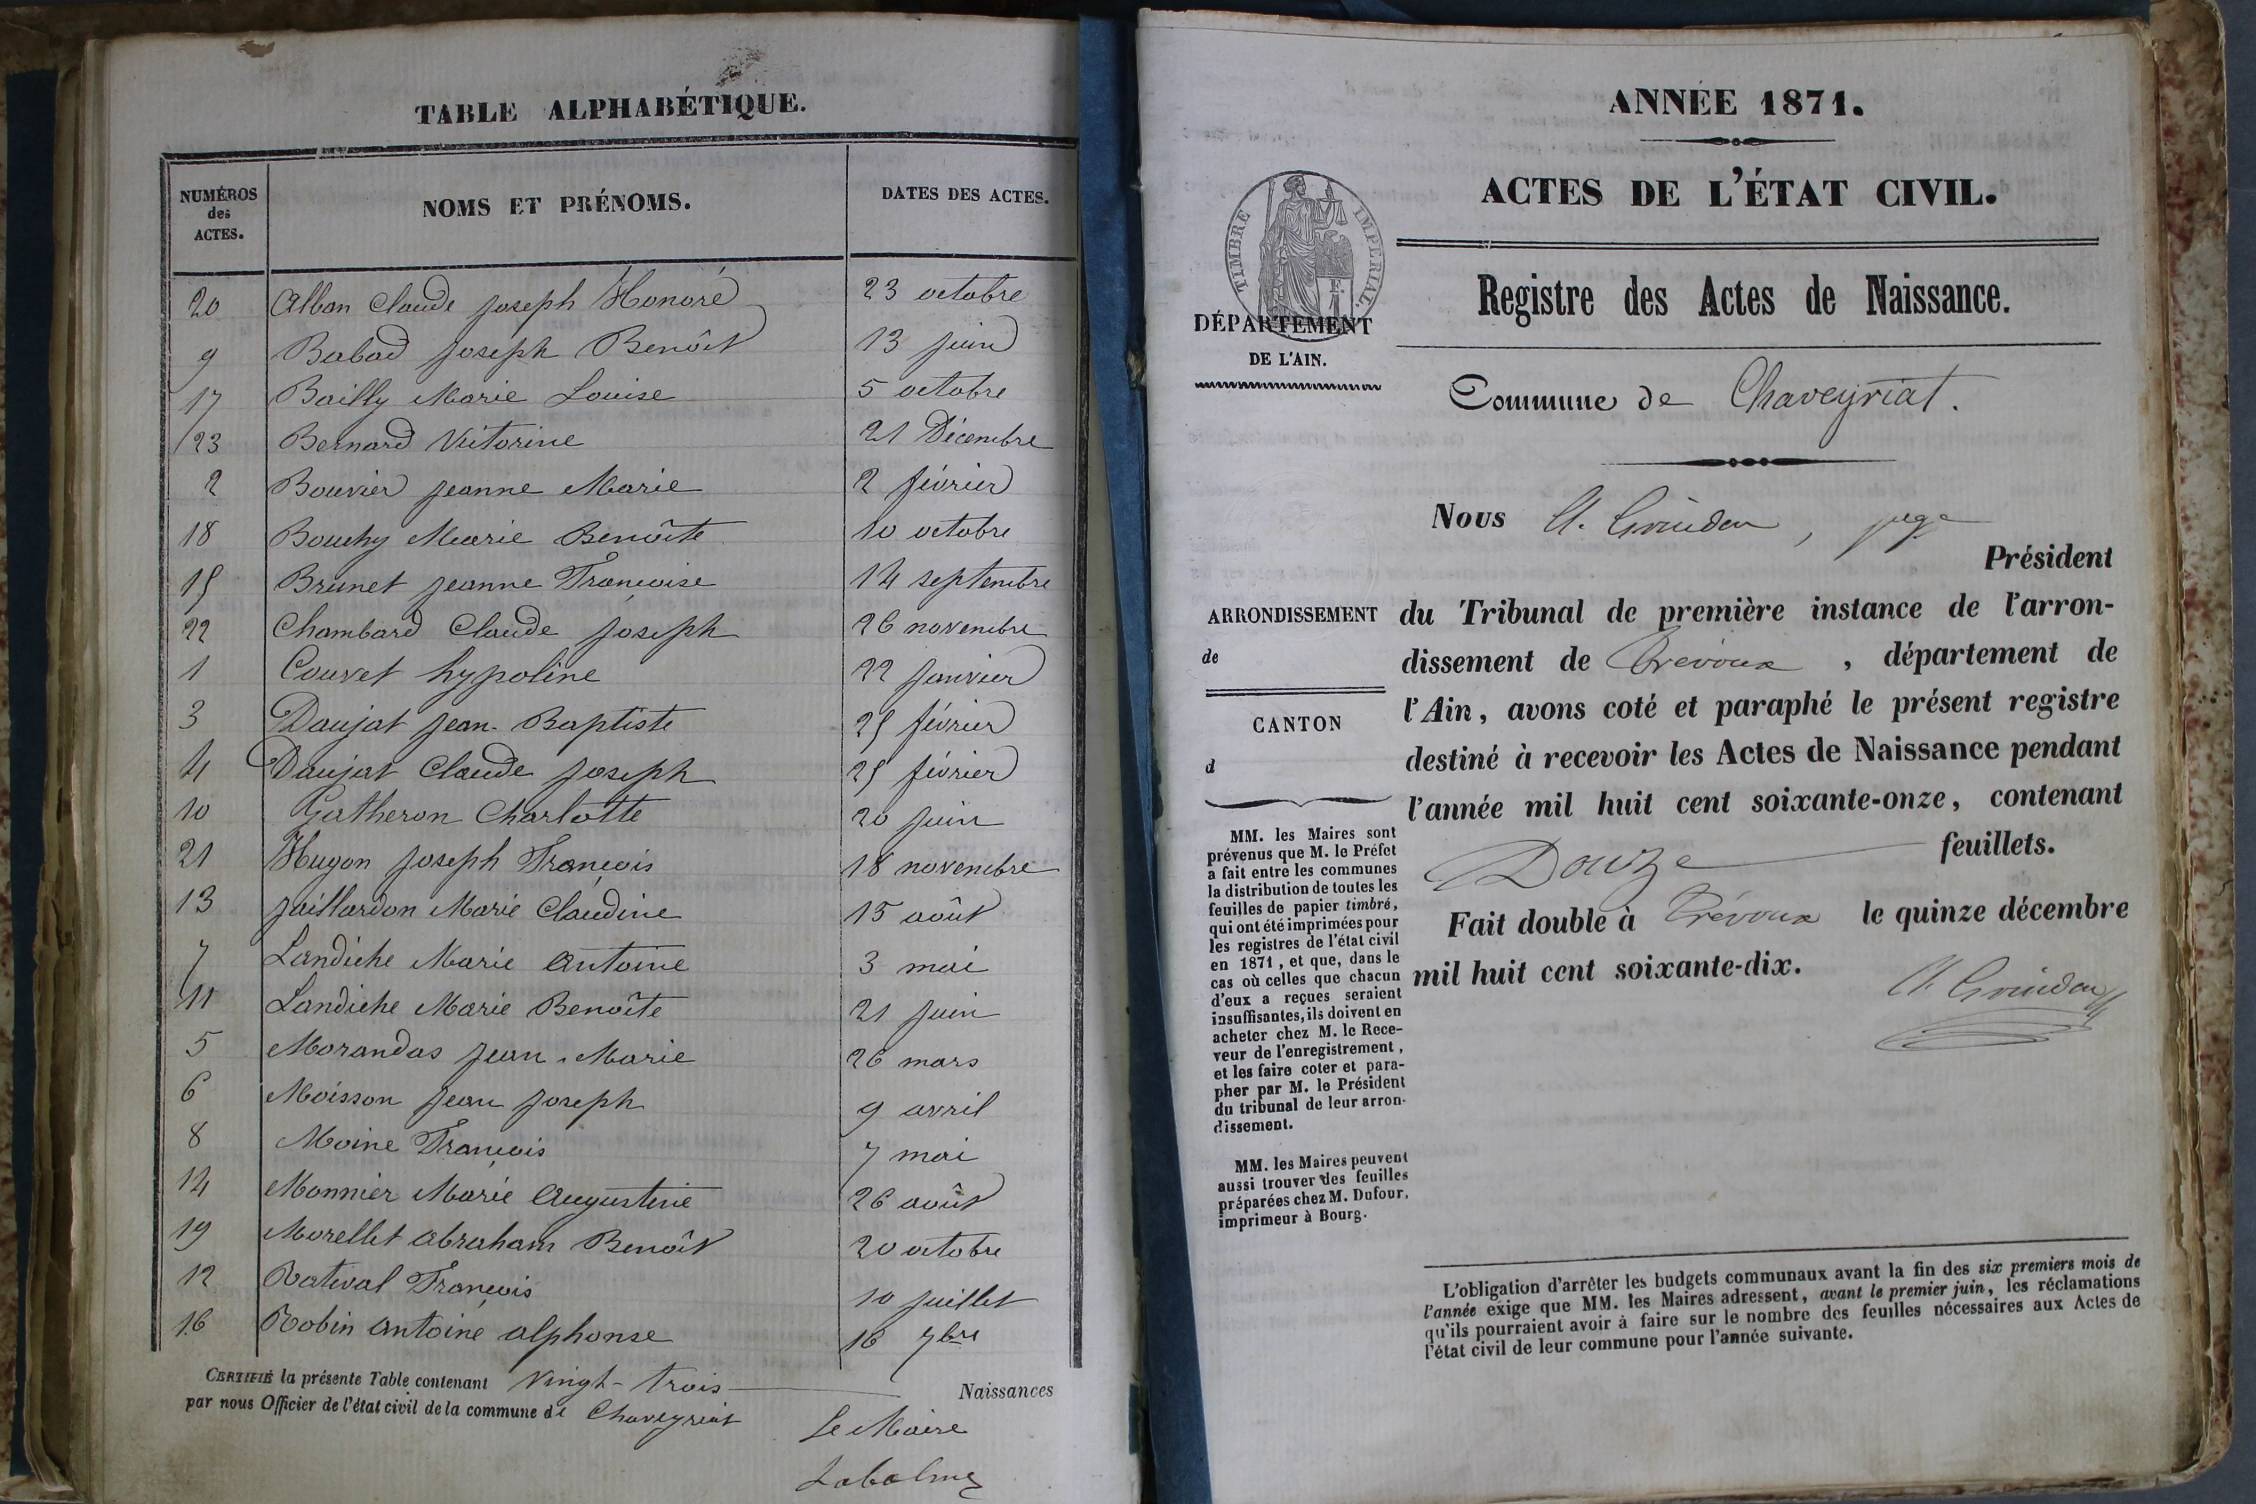 TABLE ALPHABÉTIQUE.
NUMÉROS des ACTES.
NOMS ET PRÉNOMS.
DATES DES ACTES.
20 Alban Claude Joseph Honoré 23 octobre
9 Babad Joseph Benoît 13 juin
17 Bailly Marie Louise 5 octobre
23 Bernard Vitorine 21 Décembre
2 Bouvier Jeanne Marie 2 février
18 Bouchy Marie Benoîte 10 octobre
15 Brunet Jeanne Françoise 14 septembre
22 Chambard Claude Joseph 26 novembre
1 Couvet hypoline 22 Janvier
3 Daujat Jean-Baptiste 25 février
4 Daujat Claude Joseph 25 février
10 Gatheron Charlotte 20 juin
21 Hugon Joseph François 18 novembre
13 Jaillardon Marie Claudine 15 août
7 Landiche Marie Antoine 3 mai
11 Landiche Marie Benoîte 21 juin
5 Morandas Jean-Marie 26 mars
6 Moisson Jean Joseph 9 avril
8 Moine François 7 mai
14 Monnier Marie Augustine 26 août
19 Morellet Abraham Benoît 20 octobre
12 Ratival François 10 juillet
16 Robin Antoine alphonse 16 7bre
CERTIFIÉ la présente Table contenant vingt-trois Naissances
par nous Officier de l'état civil de la commune de Chaveyriat
Le Maire
Labalme
ANNÉE 1871.
ACTES DE L'ÉTAT CIVIL.
TIMBRE IMPÉRIAL.
DÉPARTEMENT
DE L'AIN.
Registre des Actes de Naissance.
Commune de Chaveyriat.
Nous , juge
Président
ARRONDISSEMENT
de
CANTON
d
du Tribunal de première instance de l'arron-
dissement de Trevoux , département de
l'Ain, avons coté et paraphé le présent registre
destiné à recevoir les Actes de Naissance pendant
l'année mil huit cent soixante-onze, contenant
Douze feuillets.
Fait double à Trévoux le quinze décembre
mil huit cent soixante-dix.
MM. les Maires sont
prévenus que M. le Préfet
a fait entre les communes
la distribution de toutes les
feuilles de papier timbré,
qui ont été imprimées pour
les registres de l'état civil
en 1871, et que, dans le
cas où celles que chacun
d'eux a reçues seraient
insuffisantes, ils doivent en
acheter chez M. le Rece-
veur de l'enregistrement,
et les faire coter et para-
pher par M. le Président
du tribunal de leur arron-
dissement.
MM. les Maires peuvent
aussi trouver des feuilles
préparées chez M. Dufour,
imprimeur à Bourg.
L'obligation d'arrêter les budgets communaux avant la fin des six premiers mois de
l'année exige que MM. les Maires adressent, avant le premier juin, les réclamations
qu'ils pourraient avoir à faire sur le nombre des feuilles nécessaires aux Actes de
l'état civil de leur commune pour l'année suivante.